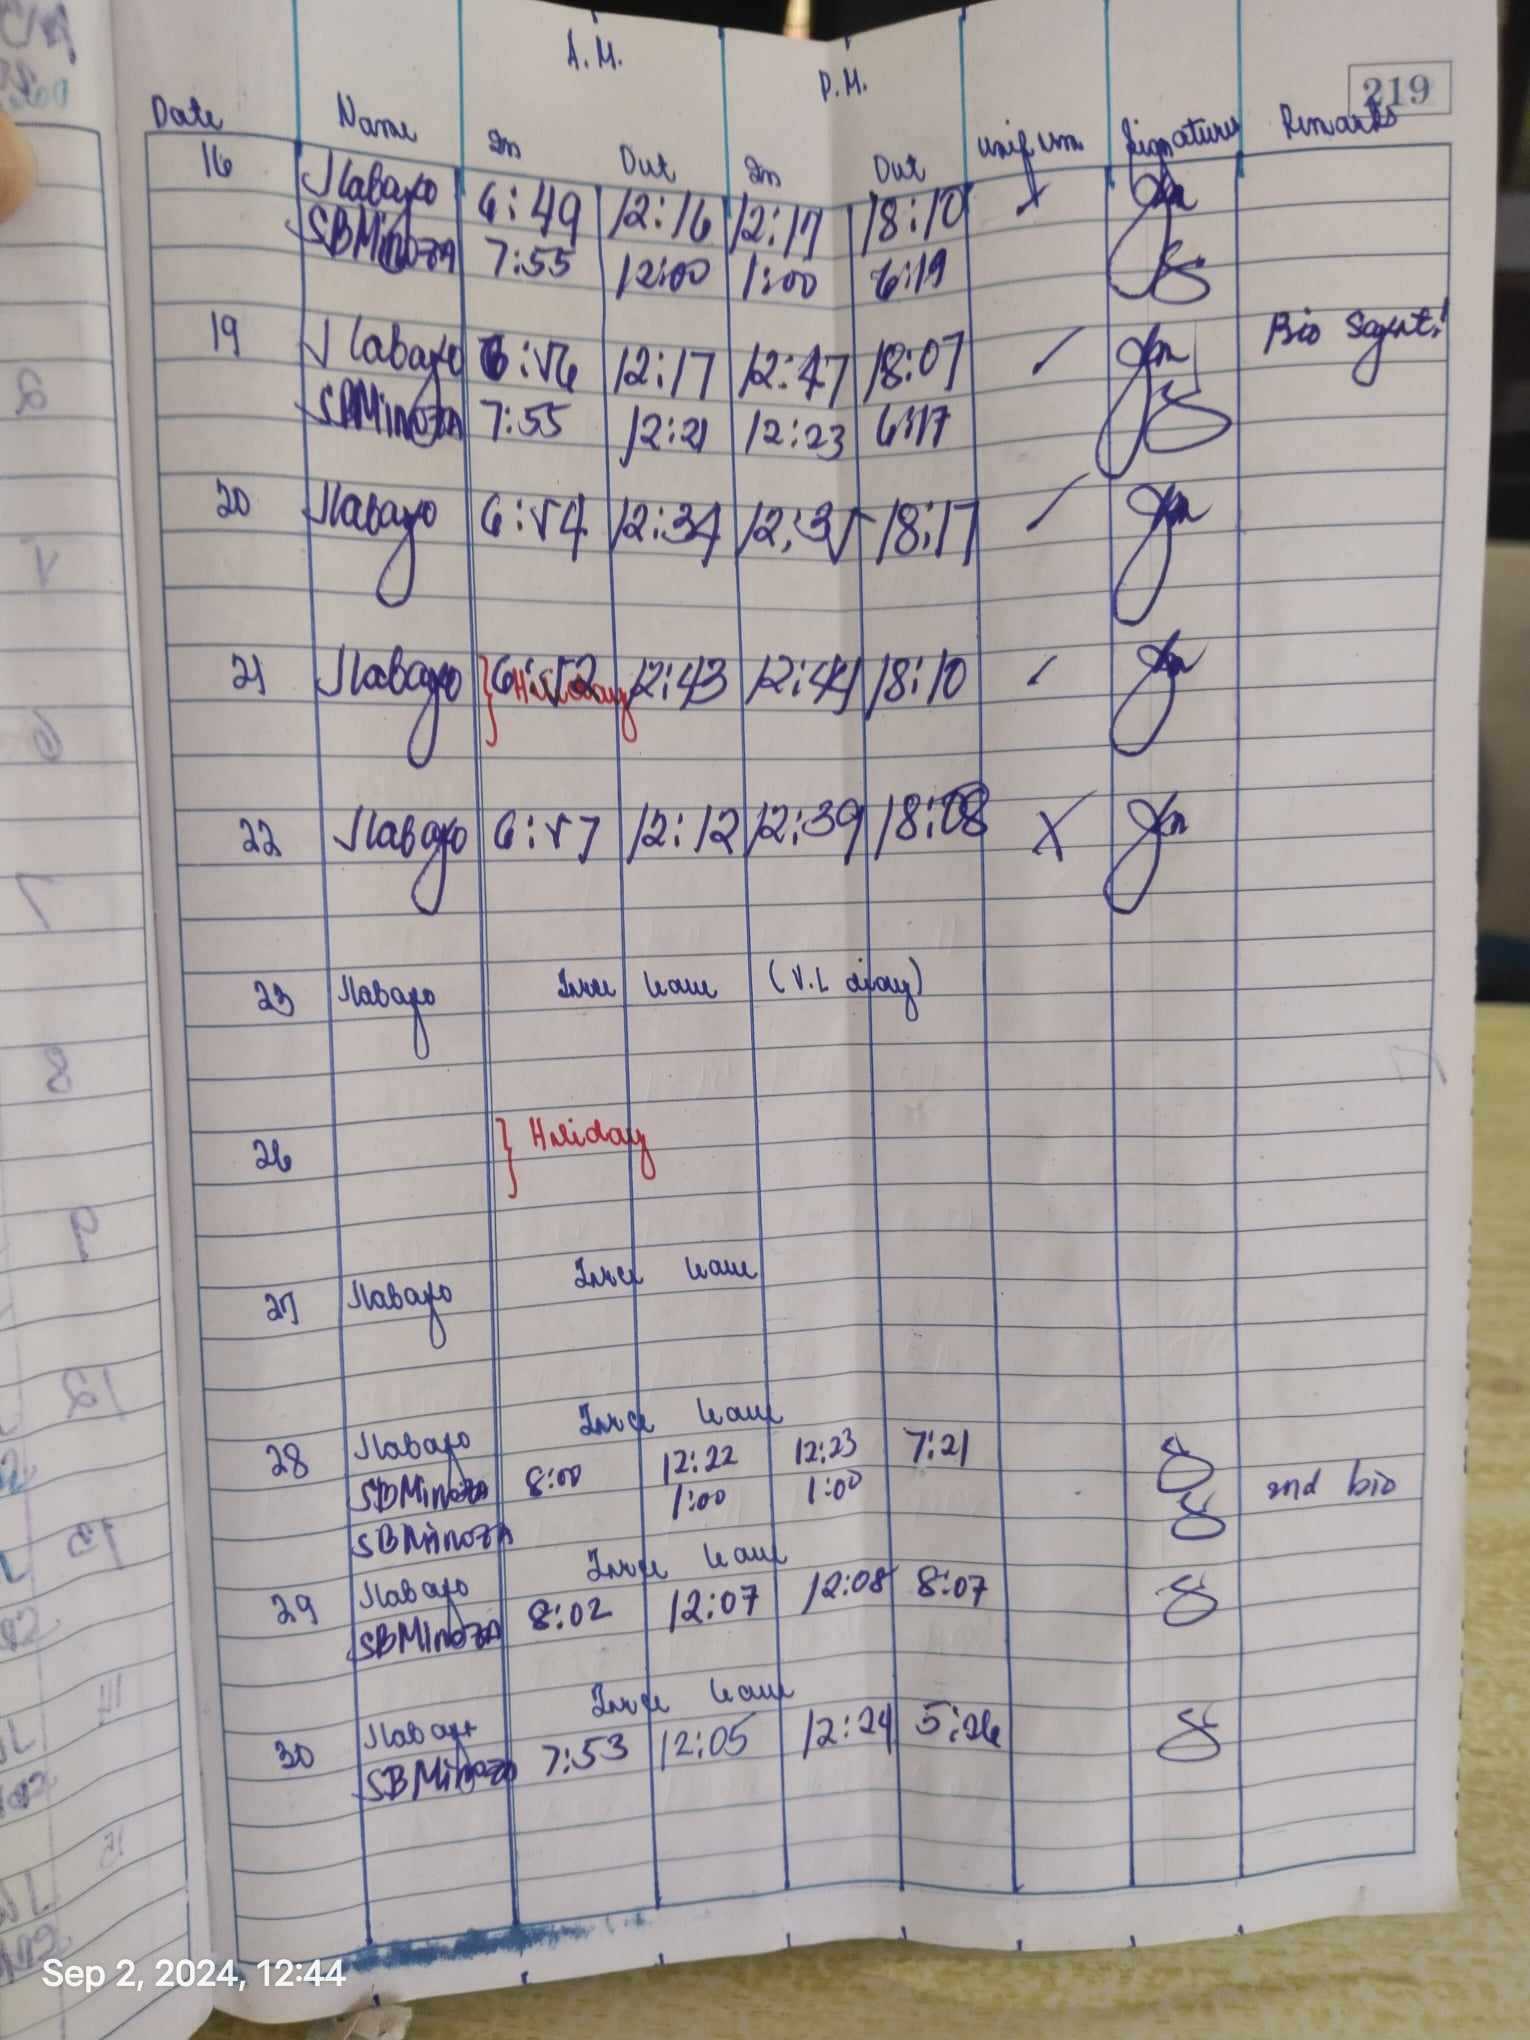 A.M. P.M. 219
Date Name In Out In Out Uniform Signatures Remarks
16 Jlabayo 6:49 12:16 12:17 18:10 x
SBMinoza 7:55 12:00 1:00 6:19
19 Jlabayo 6:56 12:17 12:47 18:07 ✓ Bio
SBMinoza 7:55 12:21 12:23 6:17
20 Jlabayo 6:54 12:34 12:35 18:17 ✓
21 Jlabayo 6:52 Holiday 12:43 12:44 18:10 ✓
22 Jlabayo 6:57 12:12 12:39 18:08 X
23 Jlabayo Force leave (V.L
26 Holiday
27 Jlabayo Force leave
28 Jlabayo Force leave
SBMinoza 8:00 12:22 12:23 7:21
SBMinoza 1:00 1:00 2nd bio
29 Jlabayo Force leave
SBMinoza 8:02 12:07 12:08 8:07
30 Jlabayo Force leave
SBMinoza 7:53 12:05 12:24 5:26
Sep 2, 2024, 12:44